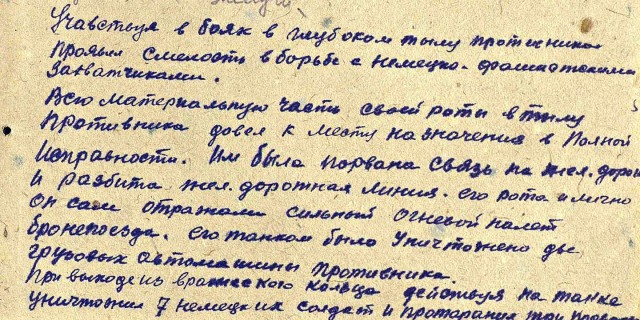 Участвуя в боях в глубоком тылу противника
Проявил смелость в борьбе с немецко-фашистскими
Захватчиками.
Всю материальную часть своей роты в тылу
Противника довел к месту назначения в Полной
Исправности. Им была порвана связь на жел. дорог
И разбита жел. дорожная линия. Его рота и лично
Он сам отражали сильный огневой налет
бронепоезда. Его танком было Уничтожено две
грузовых автомашины противника.
При выходе из вражеского кольца действуя на танке
Уничтожил 7 немецких солдат и протаранил три